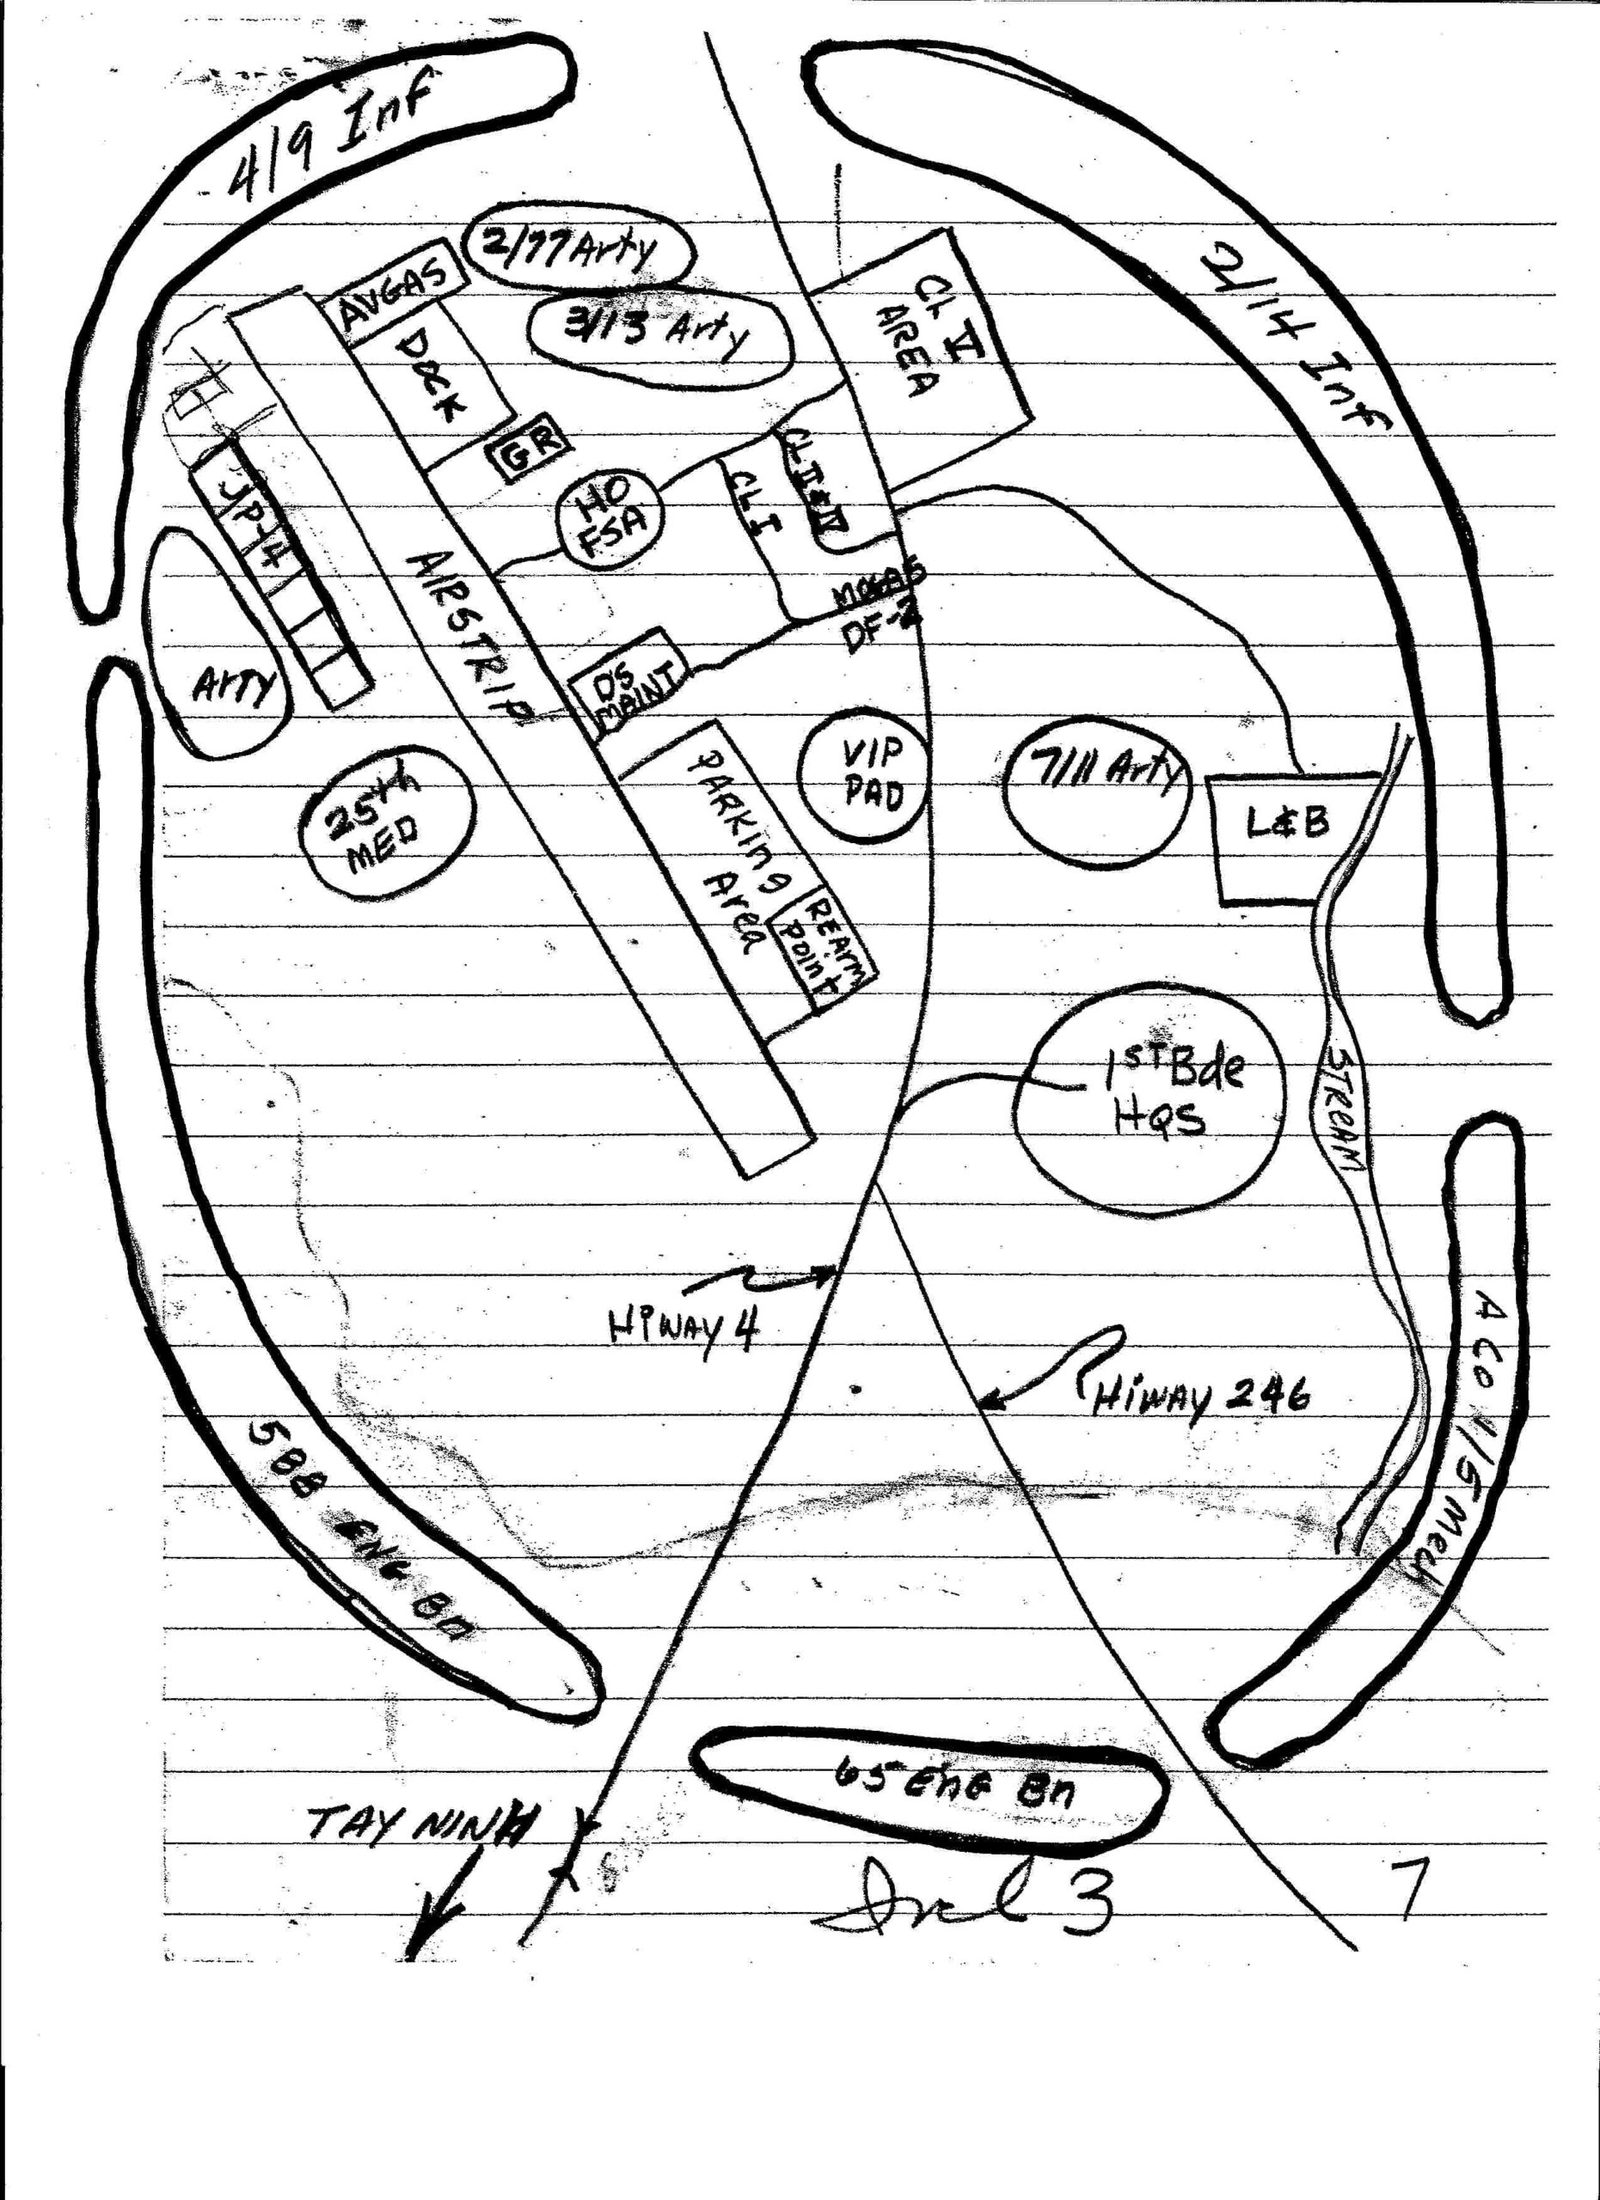 4/9 Inf
2/14 Inf
2/77 Arty
3/13 Arty
AVGAS
DOCK
GR
CL V
AREA
JP-4
HQ
FSA
CL I
CL II & IV
MOGAS
DF-2
AIRSTRIP
Arty
DS
MAINT
25th
MED
PARKing
Area
REARM
Point
VIP
PAD
7/11 Arty
L&B
STREAM
1ST Bde
HQS
HiWAY 4
HiWAY 246
A Co 1/5 Mech
588 ENG Bn
65 ENG Bn
TAY NINH
Incl 3
7